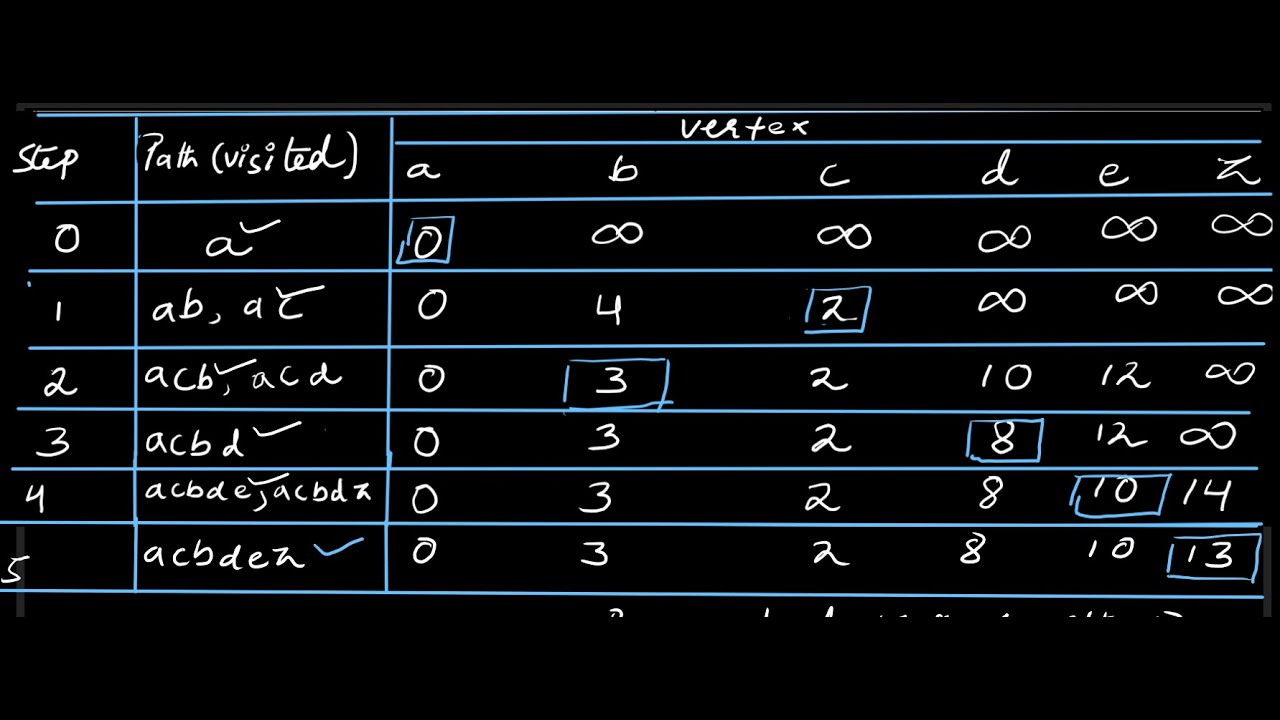 vertex
Step Path (visited) a b c d e z
0 a✓ 0 ∞ ∞ ∞ ∞ ∞
1 ab, ac✓ 0 4 2 ∞ ∞ ∞
2 acb✓, acd 0 3 2 10 12 ∞
3 acbd✓ 0 3 2 8 12 ∞
4 acbde✓, acbdz 0 3 2 8 10 14
5 acbdez ✓ 0 3 2 8 10 13